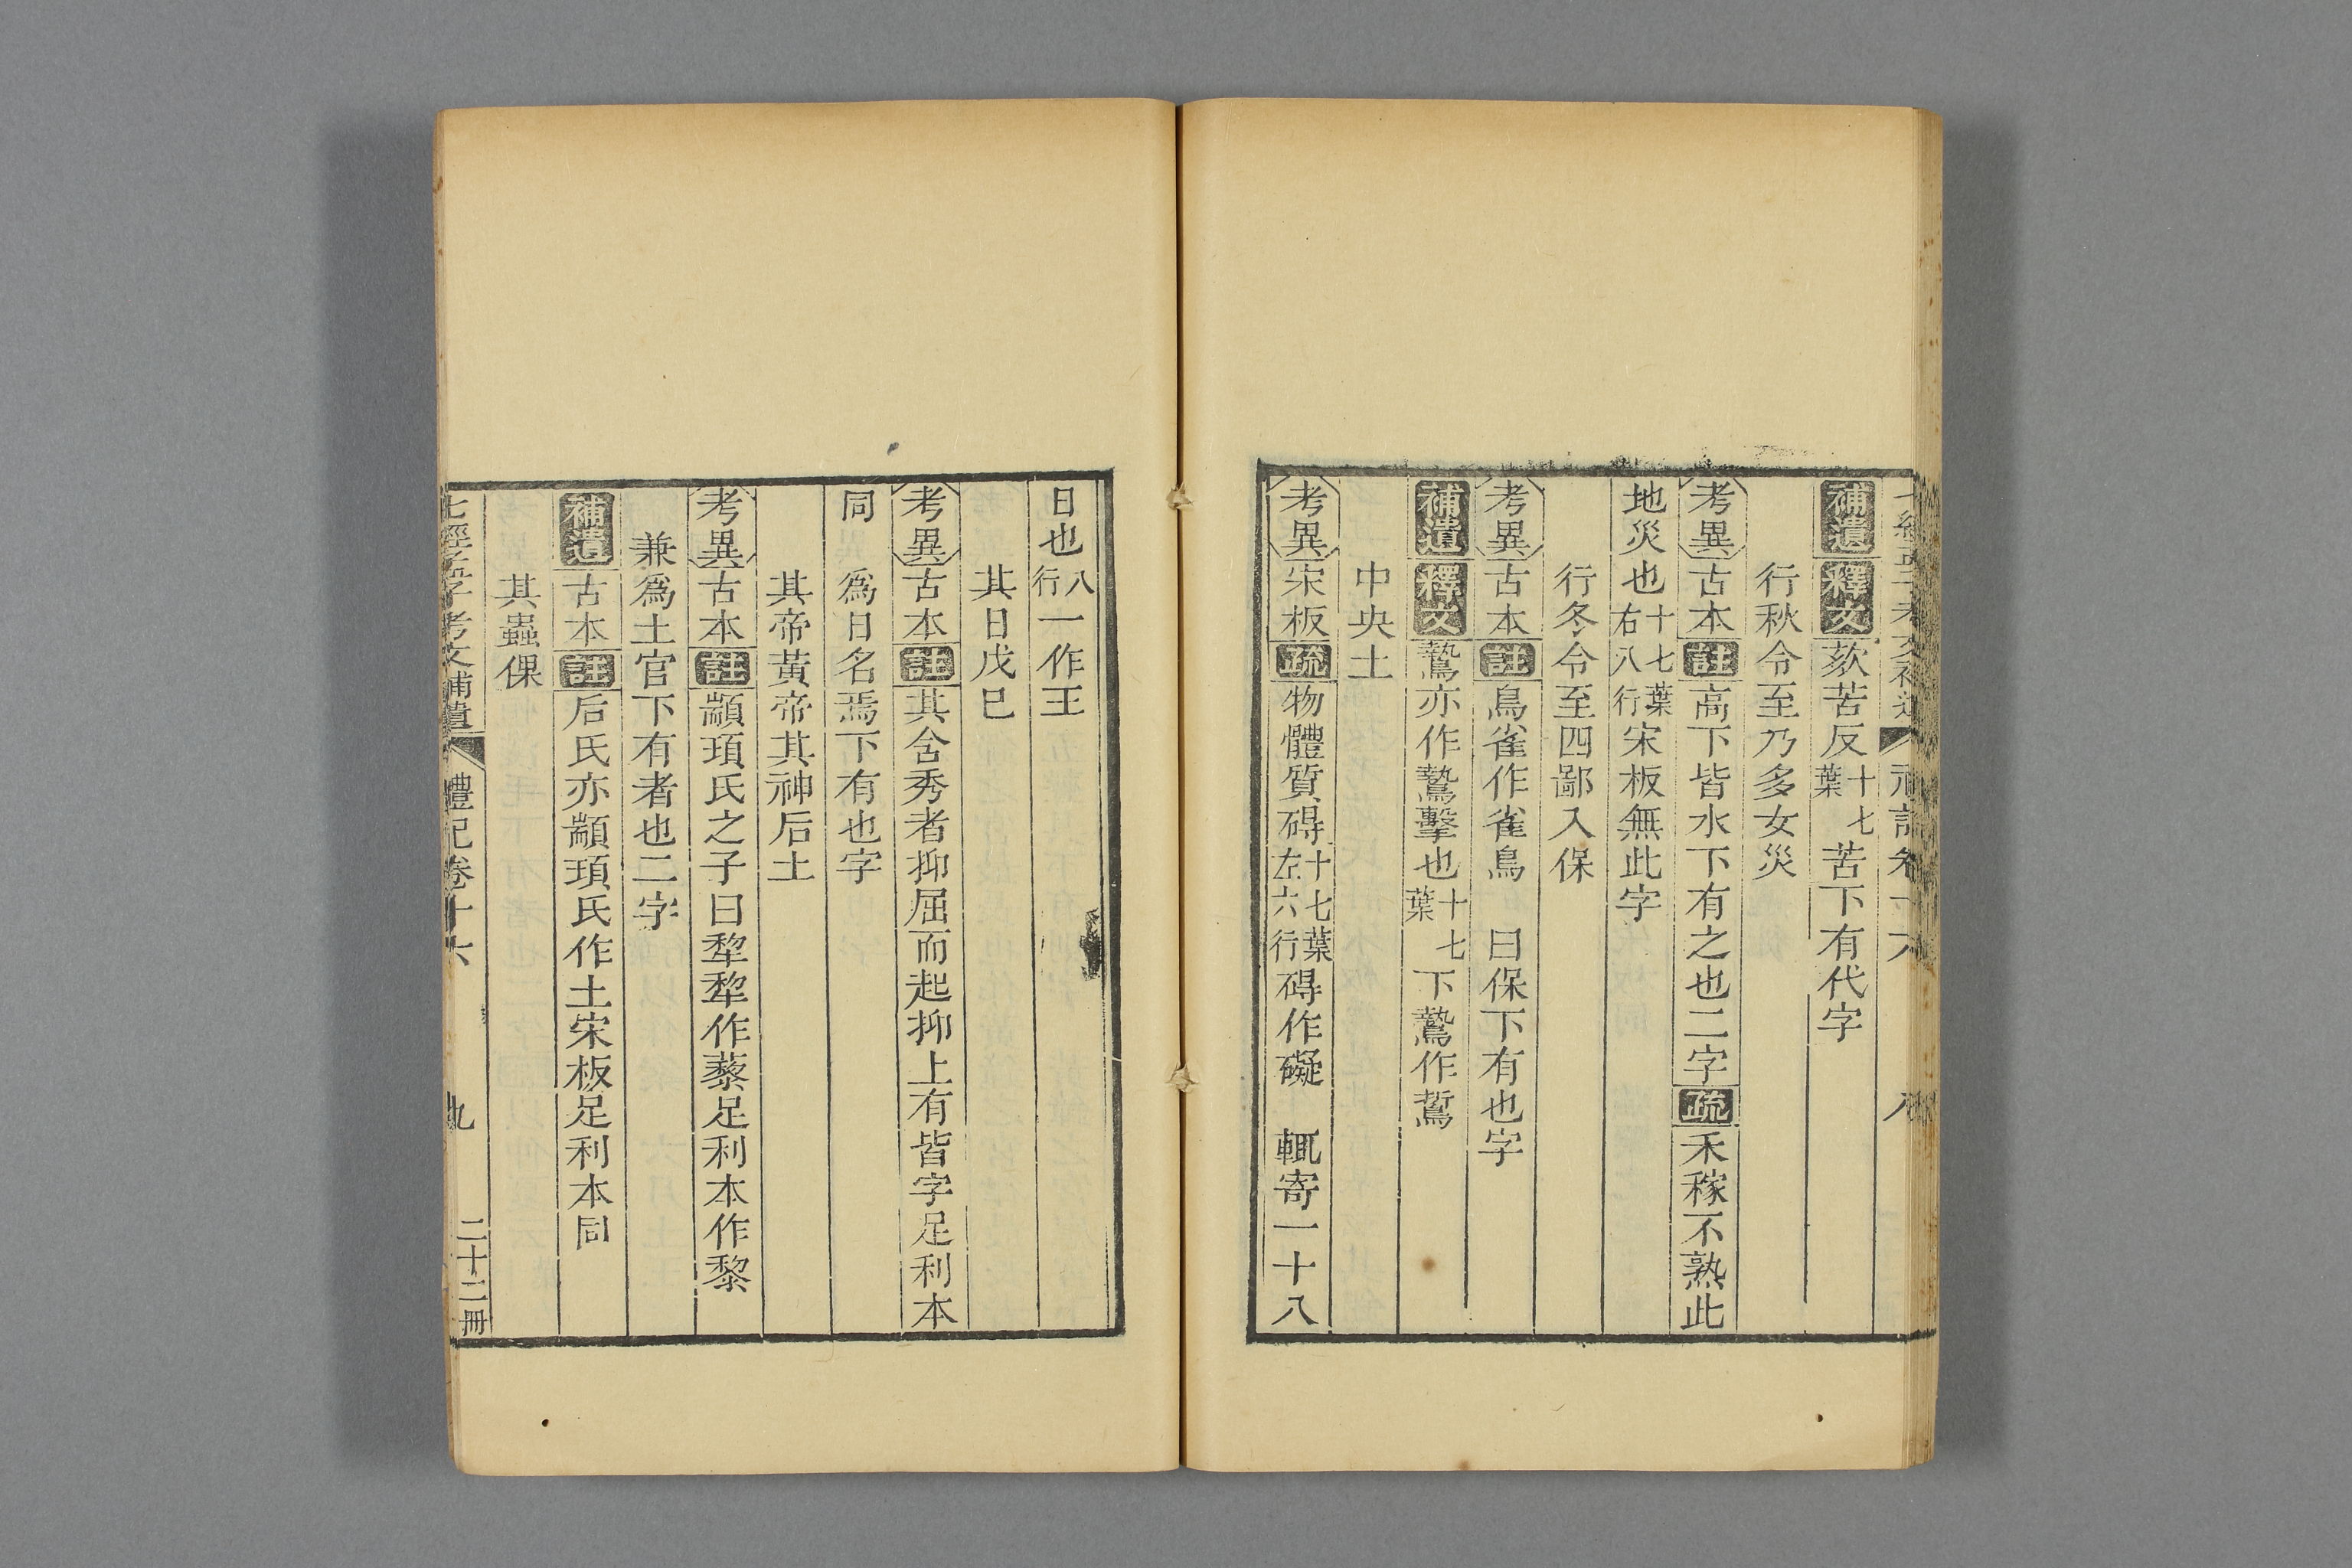 補遺 釋文 欬苦反十七葉苦下有代字
行秋令至乃多女災
考異 古本 註 高下皆水下有之也二字 疏 禾稼不熟此
地災也十七葉右八行宋板無此字
行冬令至四鄙入保
考異 古本 註 鳥雀作雀鳥 曰保下有也字
補遺 釋文 鷙亦作鷙擊也十七葉下鷙作鴷
中央土
考異 宋板 疏 物體質碍十七葉左六行碍作礙 輒寄一十八
日也八行一作王
其日戊巳
考異 古本 註 其含秀者抑屈而起抑上有皆字足利本
同 爲日名焉下有也字
其帝黃帝其神后土
考異 古本 註 顓頊氏之子曰犂犂作藜足利本作黎
兼爲土官下有者也二字
補遺 古本 註 后氏亦顓頊氏作土宋板足利本同
其蟲倮
七經孟子考文補遺 禮記卷十六 九 二十二冊